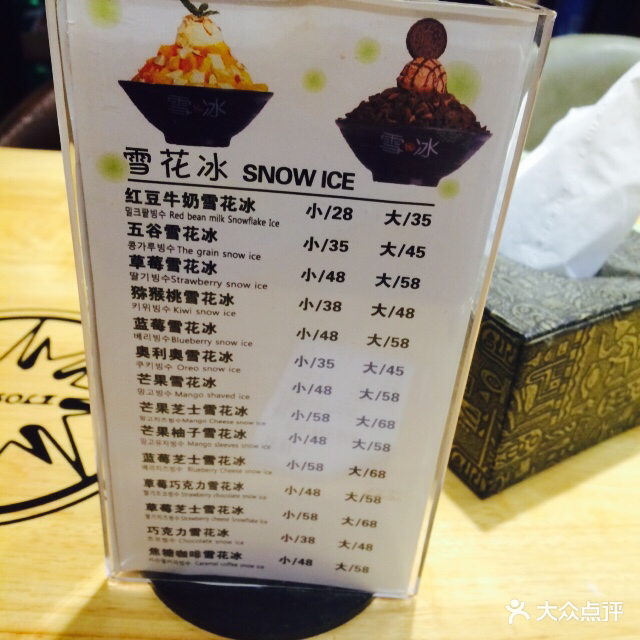 雪冰
雪冰
雪花冰 SNOW ICE
红豆牛奶雪花冰 小/28 大/35
밀크팥빙수 Red bean milk Snowflake Ice
五谷雪花冰 小/35 大/45
콩가루빙수 The grain snow ice
草莓雪花冰 小/48 大/58
딸기빙수 Strawberry snow ice
猕猴桃雪花冰 小/38 大/48
키위빙수 Kiwi snow ice
蓝莓雪花冰 小/48 大/58
베리빙수 Blueberry snow ice
奥利奥雪花冰 小/35 大/45
쿠키빙수 Oreo snow ice
芒果雪花冰 小/48 大/58
망고빙수 Mango shaved ice
芒果芝士雪花冰 小/58 大/68
Mango Cheese snow ice
芒果柚子雪花冰 小/48 大/58
Mango shaved snow ice
蓝莓芝士雪花冰 小/58 大/68
Blueberry Cheese snow ice
草莓巧克力雪花冰 小/48 大/58
Strawberry chocolate snow ice
草莓芝士雪花冰 小/58 大/68
Strawberry cheese Snowflake Ice
巧克力雪花冰 小/38 大/48
snow ice
焦糖咖啡雪花冰 小/48 大/58
Caramel coffee snow ice
大众点评